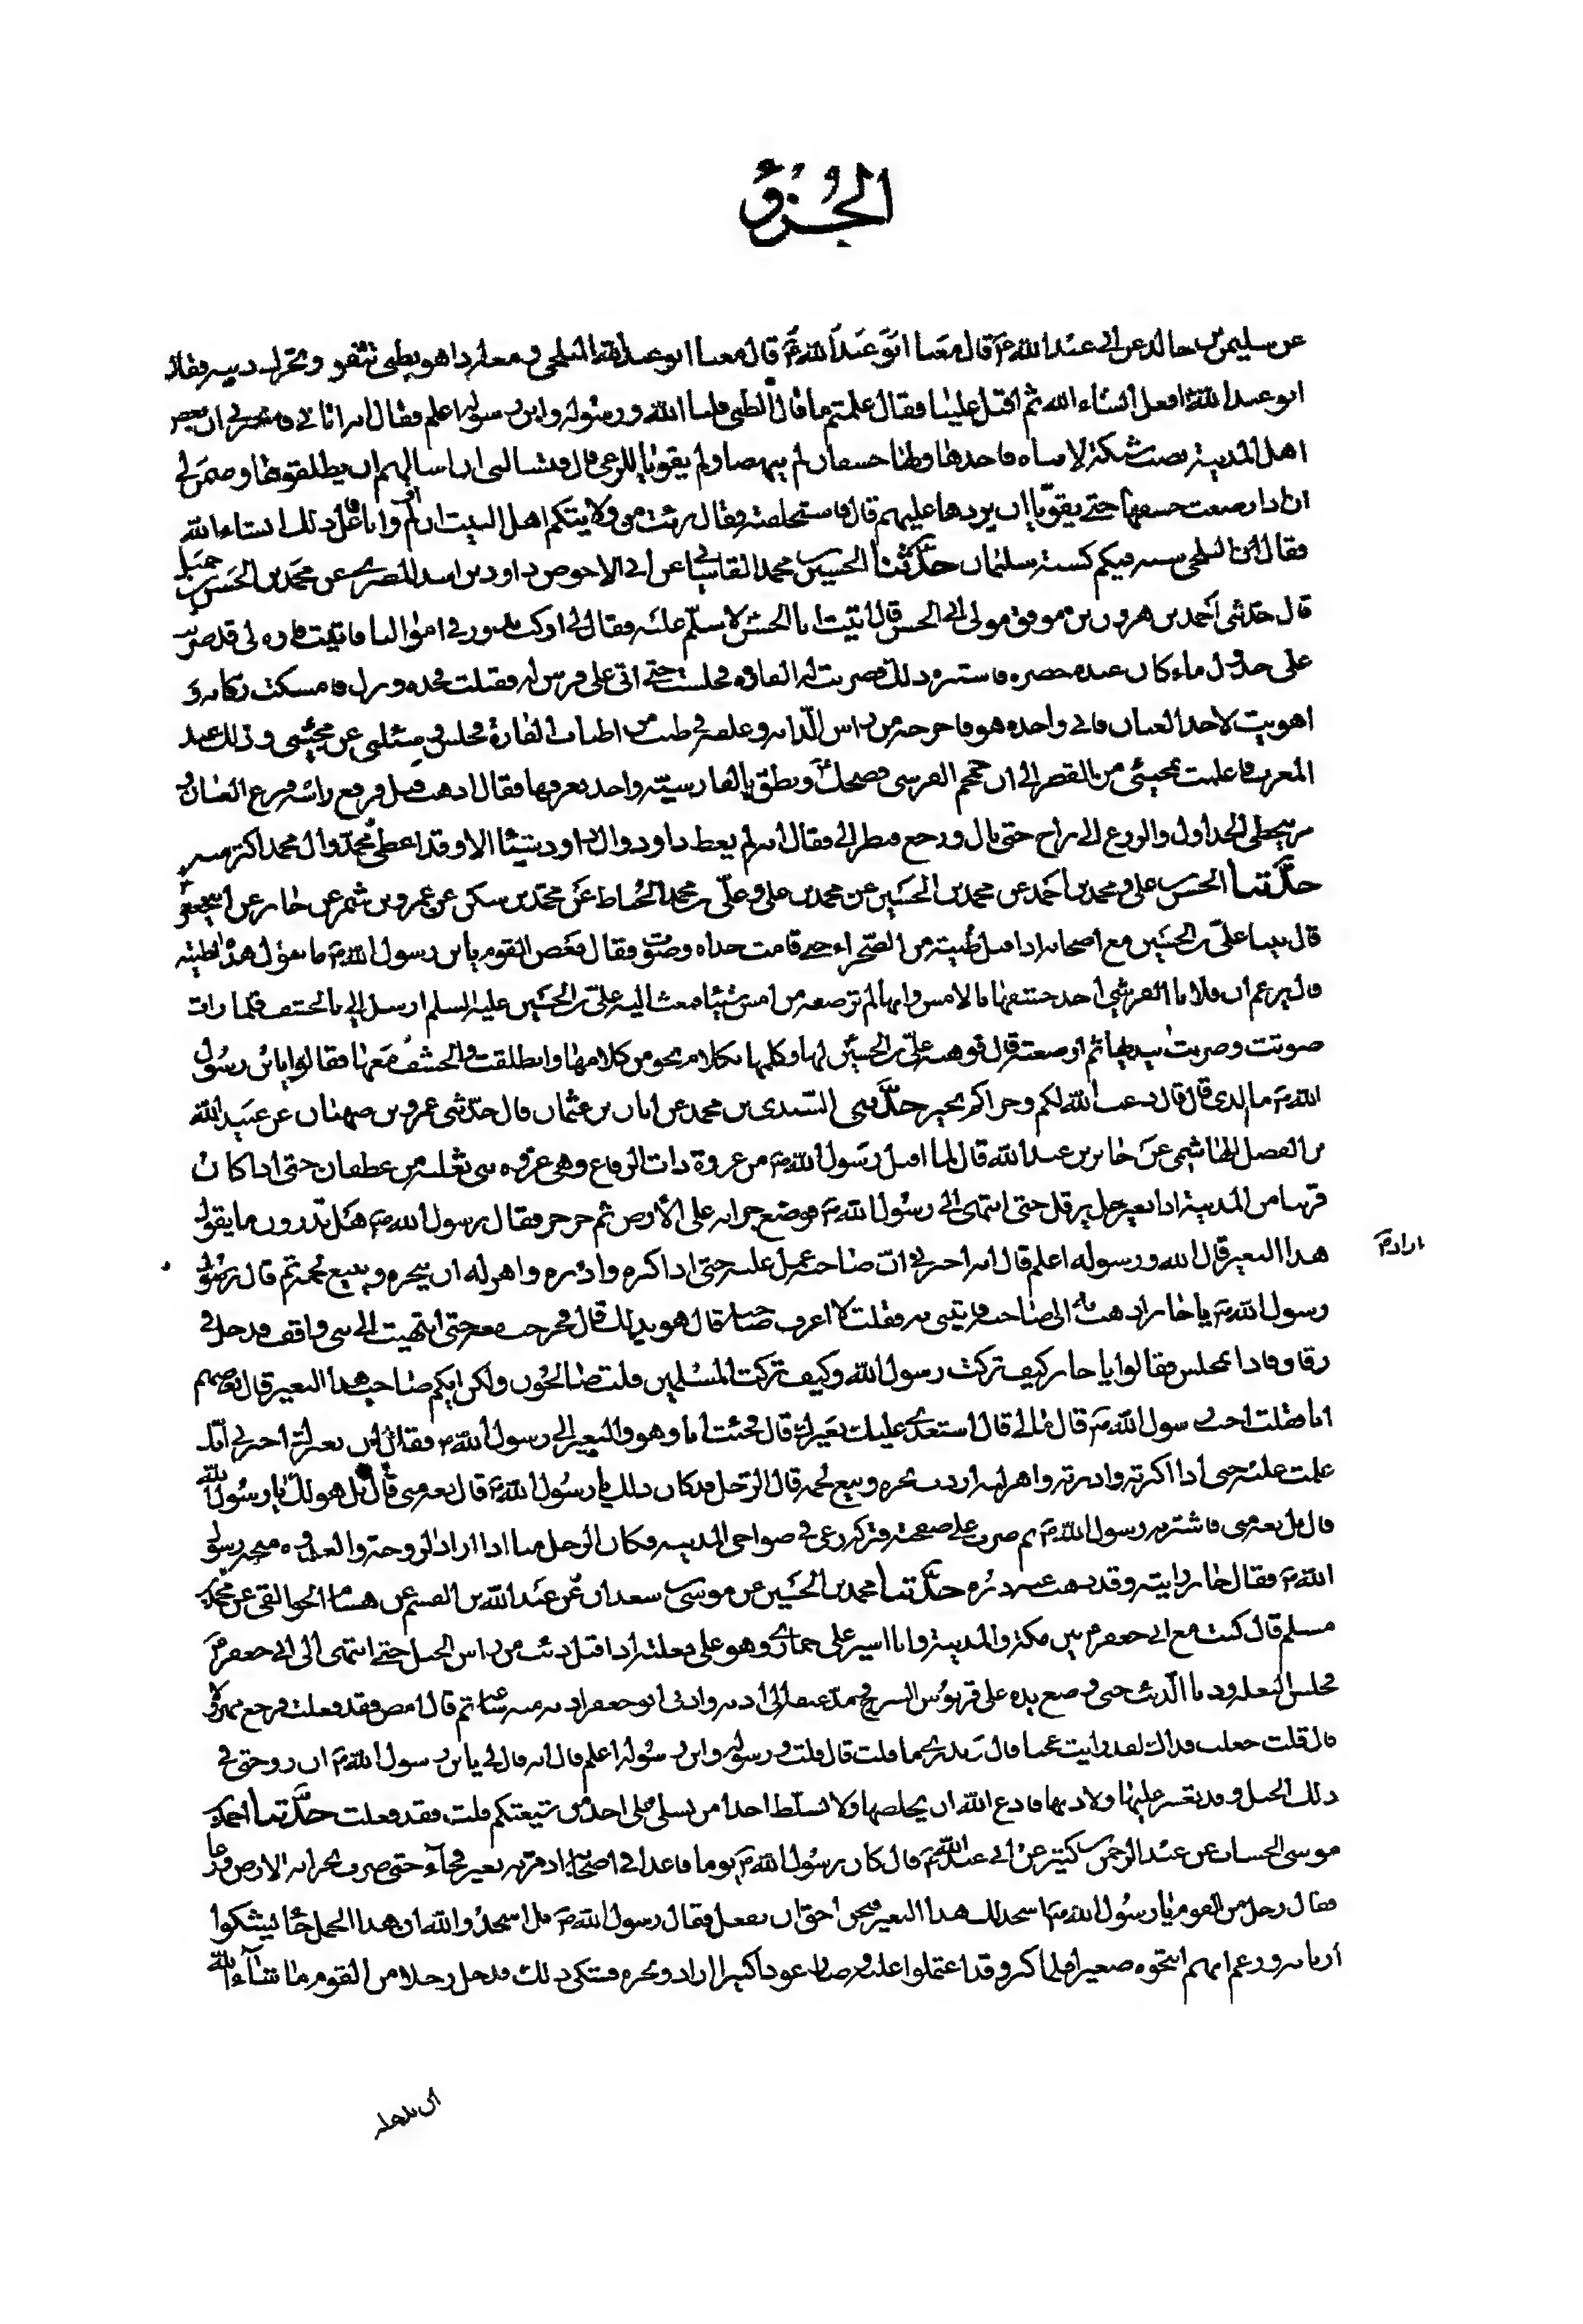 الجزؤ
عن سليمن بن خالد عن ابي عبد الله ع قال معنا ابو عبد الله البلخي ومعه اذا هو بظبي تثغو وتحرك ذنبه فقال
ابو عبد الله افعل انشاء الله ثم اقبل علينا فقال علمتم ما قال الظبي قلنا الله ورسوله وابن رسوله اعلم فقال انه اتاني فاخبرني ان بعض
اهل المدينة نصب شبكة لانثاه فاخذها ولها خشفان لم ينهضا ولم يقويا للرعي قال فيسالني ان اسالهم ان يطلقوها وضمن لي
ان اذا ارضعت خشفيها حتى يقويا ان يردها عليهم قال فاستحلفته فقال برئت من ولايتكم اهل البيت ان لم اف وانا فاعل ذلك انشاء الله
فقال البلخي سنة فيكم كسنة سليمان حدثنا الحسين بن محمد القاساني عن ابي الاحوص داود بن اسد المصري عن محمد بن الحسن بن جميل
قال حدثني احمد بن هرون بن موفق مولى ابي الحسن قال اتيت ابا الحسن لاسلم عليه فقال لي اركب ندور في اموالنا فاتيت فازة لي قد ضربت
على جدول ماء كان عنده خضرة فاستنزه ذلك فضربت له الفازة فجلست حتى اتى على فرس له فقبلت فخذه ونزل فامسكت ركابه و
اهويت لاخذ العنان فابى واخذه هو فاخرجه من راس الدابة وعلقه في طنب من اطناب الفازة فجلس فسئلني عن مجيئي وذلك عند
المغرب فاعلمته بمجيئي من القصر الى ان حمحم الفرس فضحك ع ونطق بالفارسية واخذ بعرفها فقال اذهب فبل فرفع راسه فنزع العنان و
مر يتخطى الجداول والزرع الى براح حتى بال ورجع فنظر الي فقال انه لم يعط داود وال داود شيئا الا وقد اعطي محمد وال محمد اكثر منه
حدثنا الحسن بن علي ومحمد بن احمد عن محمد بن الحسين عن محمد بن علي وعلي بن محمد الحناط عن محمد بن سكن عن عمرو بن شمر عن جابر عن ابي جعفر
قال بينا علي بن الحسين مع اصحابه اذ اقبل ظبية من الصحراء حتى قامت حذاه وصوتت فقال بعض القوم يابن رسول الله ما تقول هذه الظبية
قال يزعم ان فلانا القرشي اخذ خشفها بالامس وانها لم ترضعه من امس شيئا فبعث اليه علي بن الحسين عليه السلم ارسل الي بالخشف فلما رات
صوتت وضربت بيديها ثم ارضعته قال فوهبه علي بن الحسين لها وكلمها بكلام نحو من كلامها وانطلقت والخشف معها فقالوا يابن رسول
الله ما الذي قال قال دعت الله لكم وجزاكم بخير حدثني السندي بن محمد عن ابان بن عثمان قال حدثني عمرو بن صهبان عن عبد الله
بن الفضل الهاشمي عن جابر بن عبد الله قال لما اقبل رسول الله ص من غزوة ذات الرقاع وهي غزوة بني ثعلبة من غطفان حتى اذا كان
قريبا من المدينة اذا بعير حل يرقل حتى انتهى الى رسول الله ص فوضع جرانه على الارض ثم خرخر فقال رسول الله ص هل تدرون ما يقول
هذا البعير قال الله ورسوله اعلم قال انه اخبرني ان صاحبه عمل عليه حتى اذا اكبره وادبره واهزله اراد ان ينحره ويبيع لحمه ثم قال
رسول الله ص يا جابر اذهب به الى صاحبه فاتيني به فقلت لا اعرف صاحبه قال هو يدلك قال فخرجت معه حتى انتهيت الى بني واقف فدخل في
زقاق فاذا بمجلس فقالوا يا جابر كيف تركت رسول الله وكيف تركت المسلمين قلت صالحون ولكن ايكم صاحب هذا البعير قال بعضهم
انا فقلت اجب رسول الله ص قال مالي قال استعدى عليك بعيرك قال فجئت انا وهو والبعير الى رسول الله ص فقال ان بعيرك اخبرني انك
عملت عليه حتى اذا اكبرته وادبرته واهزلته اردت نحره وبيع لحمه قال الرجل قد كان ذلك يا رسول الله ص قال بعه مني قال بل هو لك يا رسول الله
قال بل بعه مني فاشتره رسول الله ص ثم ضرب على صفحته فتركه رعى في ضواحي المدينة فكان الرجل منا اذا اراد الروحة والغدوة منحه رسول
الله ص فقال جابر رايته وقد ذهب عنه دبره حدثنا محمد بن الحسين عن موسى بن سعدان عن عبد الله بن القسم عن هشام الجواليقي عن محمد بن
مسلم قال كنت مع ابي جعفر ع بين مكة والمدينة وانا اسير على حمار لي وهو على بغلته اذ اقبل ذئب من راس الجبل حتى انتهى الى ابي جعفر ع
فحبس البغلة ودنا الذئب حتى وضع يده على قربوس السرج ومد عنقه الى اذنه وادنى ابو جعفر اذنه منه ساعة ثم قال امض فقد فعلت فرجع مهرولا
قال قلت جعلت فداك لقد رايت عجبا قال تدري ما قلت قال قلت ورسوله وابن رسوله اعلم قال انه قال لي يابن رسول الله ص ان زوجتي في
ذلك الجبل وقد تعسر عليها ولادتها فادع الله ان يخلصها ولا تسلط احدا من نسلي على احد من شيعتكم قلت فقد فعلت حدثنا احمد بن
موسى الخشاب عن عبد الرحمن بن كثير عن ابي عبد الله ع قال كان رسول الله ص يوما قاعدا في اصحابه اذ مر به بعير فجاء حتى ضرب بجرانه الارض ورغا
فقال رجل من القوم يا رسول الله ص اسجد لك هذا البعير فنحن احق ان نفعل فقال رسول الله ص بل اسجدوا لله ان هذا الجمل جاء يشكوا
اربابه وزعم انهم انتجوه صغيرا فلما كبر وقد اعتملوا عليه وصار عودا كبيرا ارادوا نحره فشكى ذلك فدخل رجلا من القوم ما شاء الله